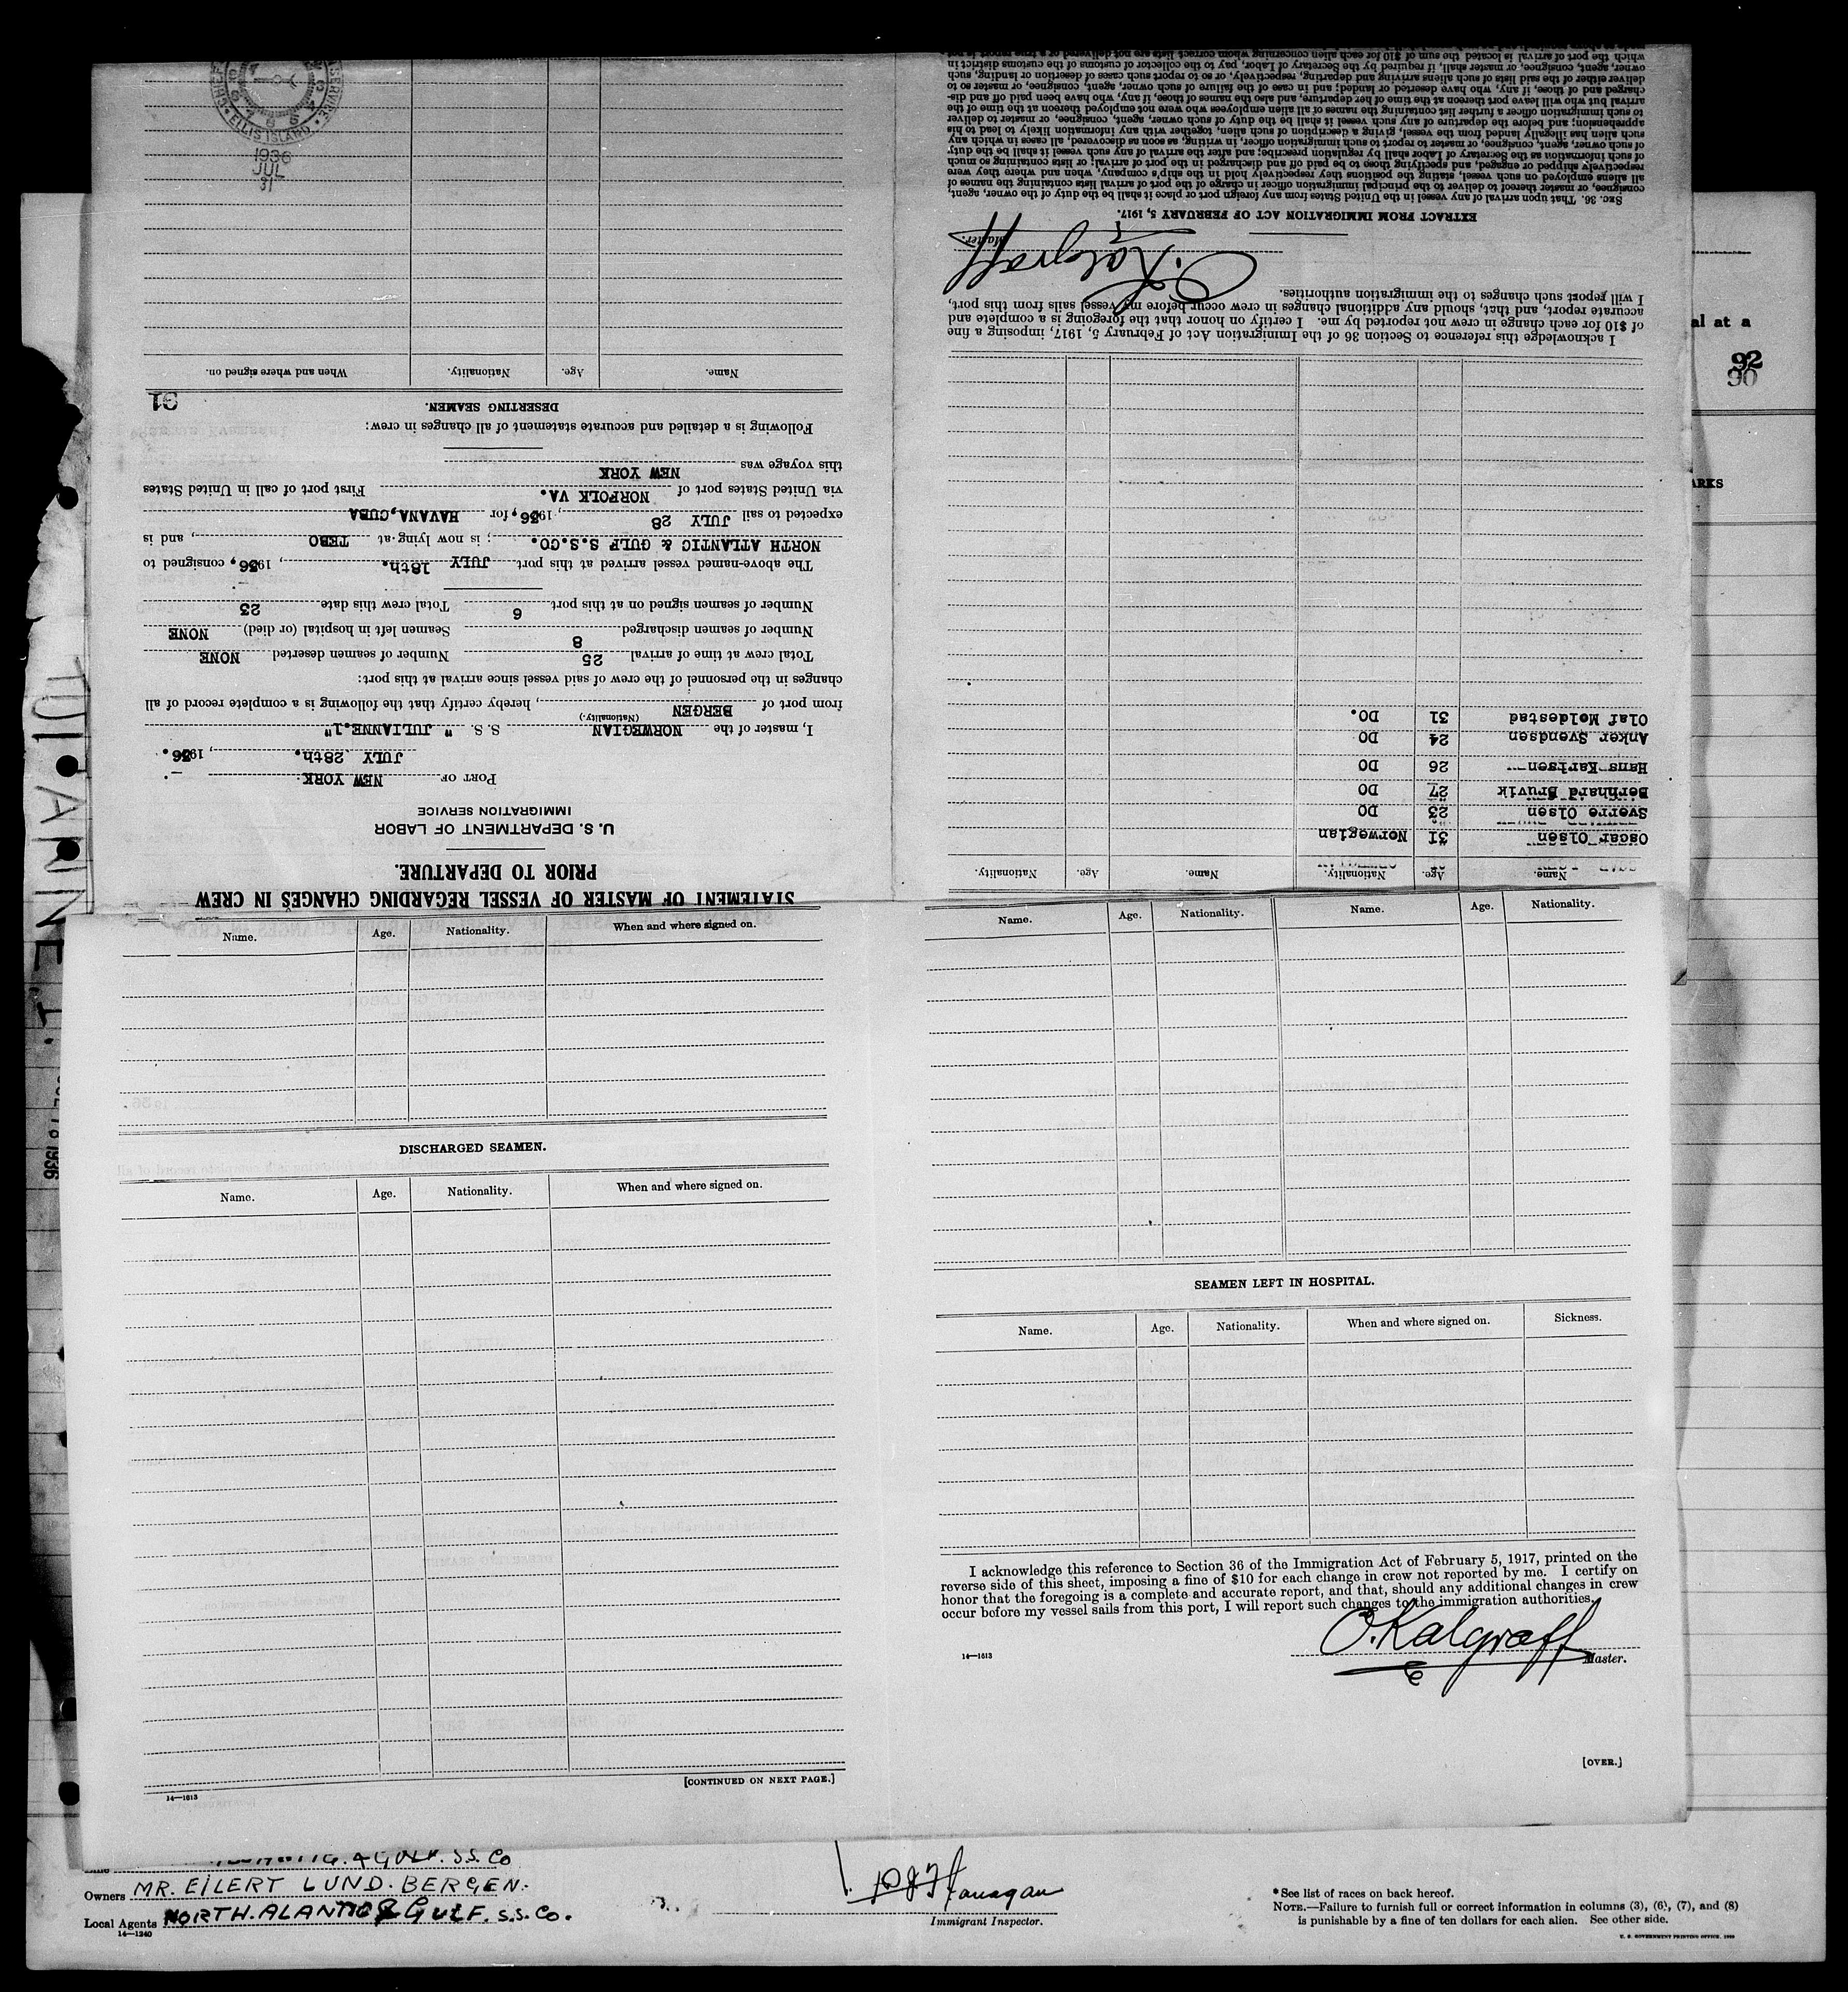 STATEMENT OF MASTER OF VESSEL REGARDING CHANGES IN CREW
PRIOR TO DEPARTURE.
U. S. DEPARTMENT OF LABOR
IMMIGRATION SERVICE
PORT OF NEW YORK
JULY 28th., 1936.
I, master of the NORWEGIAN S. S. " JULIANNE.1"
(Nationality.)
from port of BERGEN, hereby certify that the following is a complete record of all
changes in the personnel of the crew of said vessel since arrival at this port:
Total crew at time of arrival 25 Number of seamen deserted NONE
Number of seamen discharged 8 Seamen left in hospital (or died) NONE
Number of seamen signed on at this port 6 Total crew this date 23
The above-named vessel arrived at this port JULY 18th., 1936, consigned to
NORTH ATLANTIC & GULF S.S.CO.; is now lying at TEBO, and is
expected to sail JULY 28, 1936, for HAVANA,CUBA
via United States port of NORFOLK VA. First port of call in United States
this voyage was NEW YORK
Following is a detailed and accurate statement of all changes in crew:
DESERTING SEAMEN.
91
Name. Age. Nationality. When and where signed on.
ELLIS ISLAND
1936
JUL
31
Name. Age. Nationality. Name. Age. Nationality.
Oscar Olsen 31 Norwegian
Sverre Olsen 23 DO
Bernhard Bruvik 27 DO
Hans Karlsen 26 DO
Anker Svendsen 24 DO
Olaf Moldestad 31 DO.
I acknowledge this reference to Section 36 of the Immigration Act of February 5, 1917, imposing a fine
of $10 for each change in crew not reported by me. I certify on honor that the foregoing is a complete and
accurate report, and that, should any additional changes in crew occur before my vessel sails from this port,
I will report such changes to the immigration authorities.
O. Kalgraff
Master.
EXTRACT FROM IMMIGRATION ACT OF FEBRUARY 5, 1917.
SEC. 36. That upon arrival of any vessel in the United States from any foreign port or place it shall be the duty of the owner, agent,
consignee, or master thereof to deliver to the principal immigration officer in charge of the port of arrival lists containing the names of
all aliens employed on such vessel, stating the positions they respectively hold in the ship's company, when and where they were
respectively shipped or engaged, and specifying those to be paid off and discharged in the port of arrival; or lists containing so much
of such information as the Secretary of Labor shall by regulation prescribe; and after the arrival of any such vessel it shall be the duty
of such owner, agent, consignee, or master to report to such immigration officer, in writing, as soon as discovered, all cases in which any
such alien has illegally landed from the vessel, giving a description of such alien, together with any information likely to lead to his
apprehension; and before the departure of any such vessel it shall be the duty of such owner, agent, consignee, or master to deliver
to such immigration officer a further list containing the names of all alien employees who were not employed thereon at the time of the
arrival but who will leave port thereon at the time of her departure, and also the names of those, if any, who have been paid off and dis-
charged and of those, if any, who have deserted or landed; and in case of the failure of such owner, agent, consignee, or master so to
deliver either of the said lists of such aliens arriving and departing, respectively, or so to report such cases of desertion or landing, such
owner, agent, consignee, or master shall, if required by the Secretary of Labor, pay to the collector of customs of the customs district in
which the port of arrival is located the sum of $10 for each alien concerning whom correct lists are not delivered or a true report is not
al at a
92
90
ARKS
JULIANNE, 1.
1936
Name. Age. Nationality. When and where signed on.
DISCHARGED SEAMEN.
Name. Age. Nationality. When and where signed on.
[CONTINUED ON NEXT PAGE.]
14—1613
Name. Age. Nationality. Name. Age. Nationality.
SEAMEN LEFT IN HOSPITAL.
Name. Age. Nationality. When and where signed on. Sickness.
I acknowledge this reference to Section 36 of the Immigration Act of February 5, 1917, printed on the
reverse side of this sheet, imposing a fine of $10 for each change in crew not reported by me. I certify on
honor that the foregoing is a complete and accurate report, and that, should any additional changes in crew
occur before my vessel sails from this port, I will report such changes to the immigration authorities.
O. Kalgraff
14—1613 Master.
[OVER.]
& GULF. S.S. Co
Owners MR. EILERT LUND. BERGEN.
Local Agents NORTH. ALANTIC & GULF. S.S. Co.
14—1240
Flanagan
Immigrant Inspector.
* See list of races on back hereof.
NOTE.—Failure to furnish full or correct information in columns (3), (6), (7), and (8)
is punishable by a fine of ten dollars for each alien. See other side.
U. S. GOVERNMENT PRINTING OFFICE